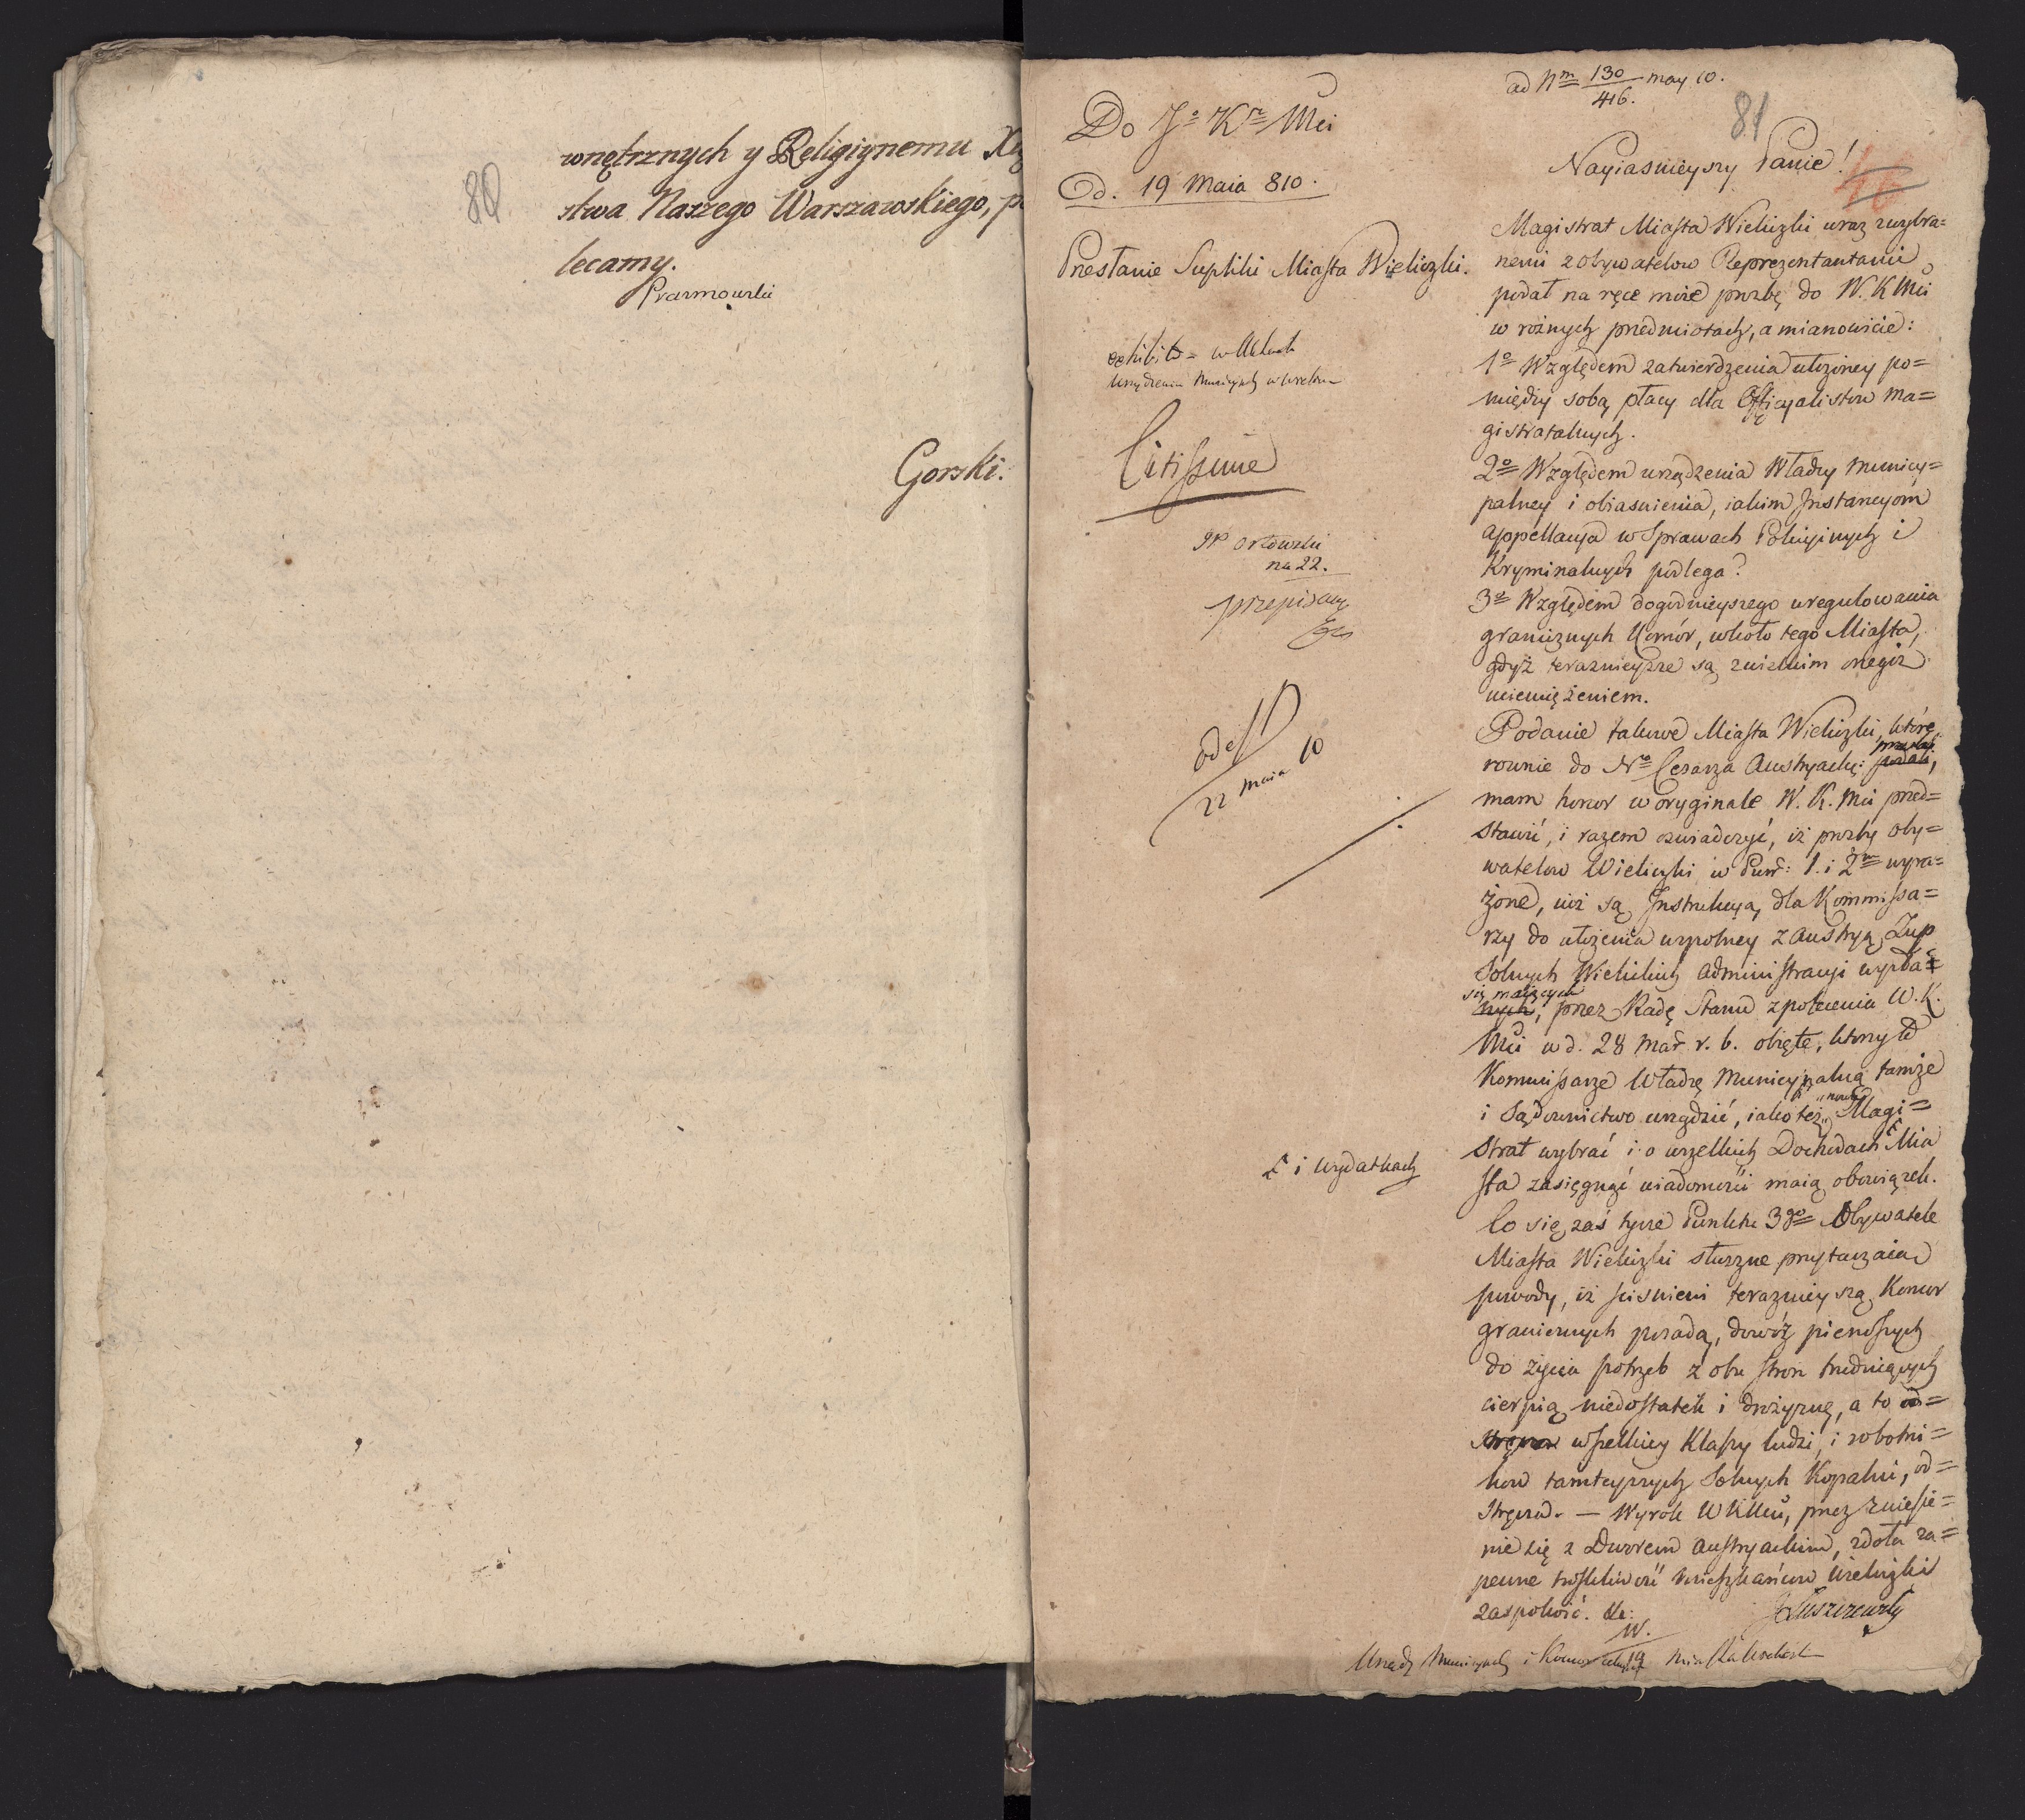 80
wnętrznych y Religiynemu
stwa Naszego Warszawskiego,
lecamy.
Prazmowski
Gorski.
ad Nm 130/416. may 10.
81
Do Jo Kr Mci
Od. 19 Maia 810.
Przesłanie Supliki Miasta Wieliczki.
Citissime
JP Orłowski
na 22.
przepisany
22 maia 10
Nayiasnieyszy Panie!
Magistrat Miasta Wieliczki wraz z wybra=
nemi z obywatelow Reprezentantami
podał na ręce moie prozbę do W. K Mci
w rożnych przedmiotach, a mianowicie:
1o Względem zatwierdzenia ułożoney po=
między sobą płacy dla Officyalistow Ma=
gistratalnych.
2o Względem urządzenia Władzy Municy=
palney i obiasnienia, iakim Instancyom
Appellacya w Sprawach Policyinych i
Kryminalnych podlega?
3o Względem dogodnieyszego uregulowania
granicznych Komór, wkoło tego Miasta,
gdyż teraznieysze są z wielkim onegoz
uciemiężeniem.
Podanie takowe Miasta Wieliczki, ktore
rownie do No Cesarza Austryack:
mam honor w oryginale W. K. Mci przed=
stawić, i razem oswiadczyć, iż prozby oby=
watelow Wieliczki w Punk: 1. i 2m wyra=
żone, iuż są Instrukcyą dla Kommissa=
rzy do ułożenia wspolney z Austryą Żup
Solnych Wielickich Administracyi wysła=
się maiących
nych, przez Radę Stanu z polecenia W. K.
Mci w d. 28 Mar. r. b. obięte, ktorzy to
Kommissarze Władzę Municypalną tamże
i Sądownictwo urządzić, iako też nowy Magi=
strat wybrać i o wszelkich Dochodach Mia
i wydatkach
sta zasięgnąć wiadomości maią obowiązek.
Co się zaś tycze Punktu 3go Obywatele
Miasta Wieliczki słuszne przytaczaią
powody, iż scisnieni teraznieyszą Komor
granicznych posadą, dowóz pierwszych
do życia potrzeb z obu stron trudniących
cierpią niedostatek i drożyznę, a to od=
wszelkiey Klassy ludzi, i robotni=
kow tamteyszych Solnych Kopalni, od=
stręcza. — Wyrok W K Mci, przez zniesie=
nie się z Dworem Austryackim, zdoła za=
pewne troskliwość Mieszkańcow Wieliczki
zaspokoić.
JŁuszczewsky